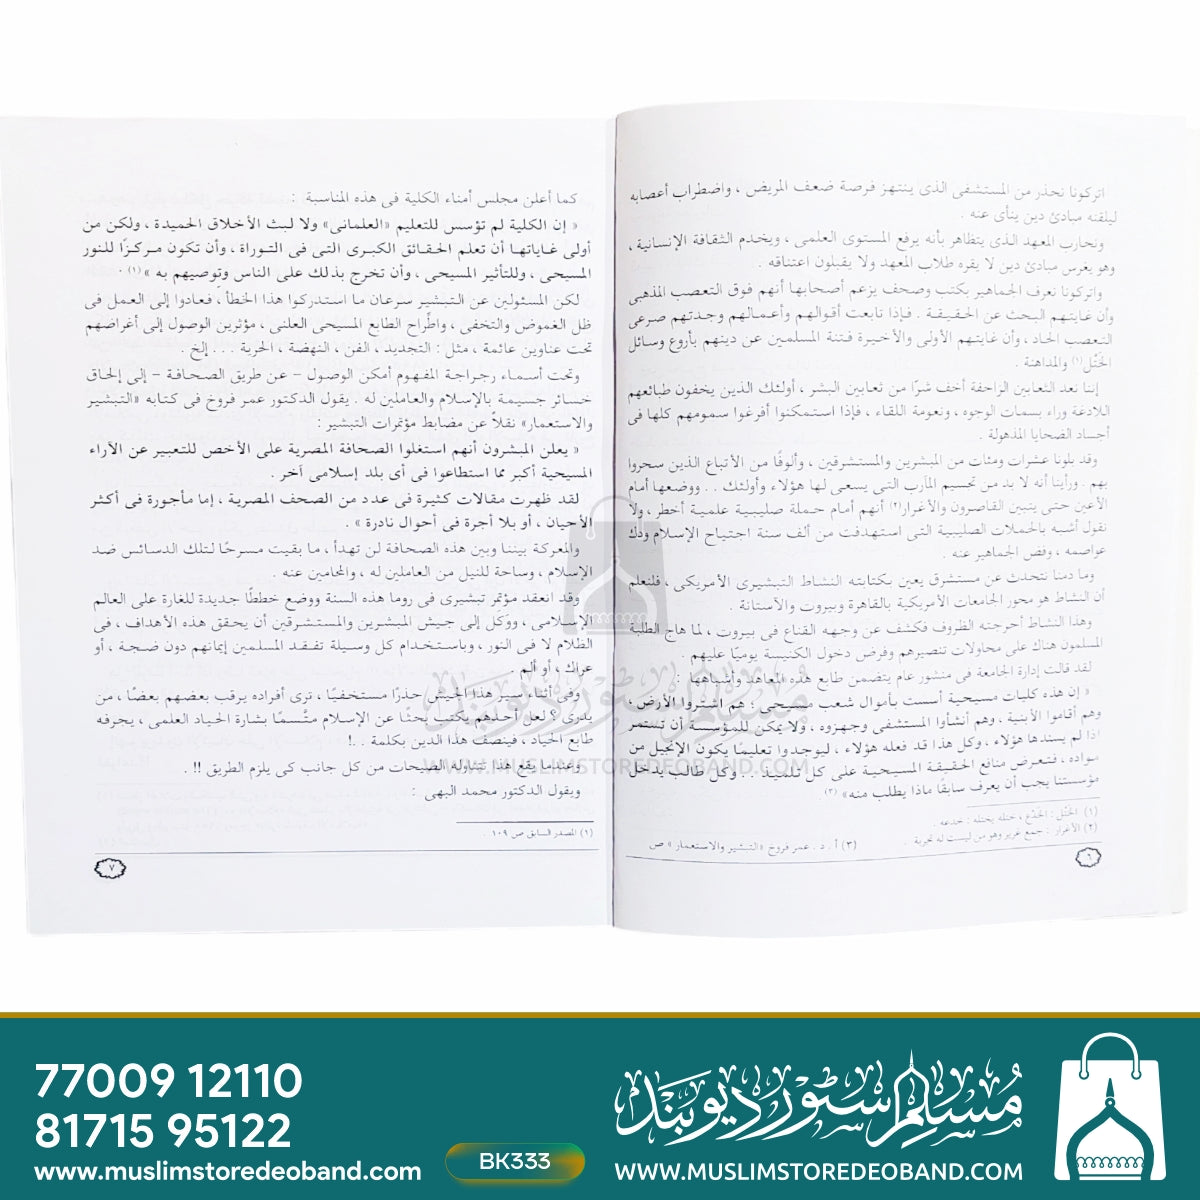 اتركونا نحذر من المستشفى الذى ينتهز فرصة ضعف المريض ، واضطراب أعصابه
ليلقنه مبادئ دين ينأى عنه .
ونحارب المعهد الذى يتظاهر بأنه يرفع المستوى العلمى ، ويخدم الثقافة الإنسانية ،
وهو يغرس مبادئ دين لا يقره طلاب المعهد ولا يقبلون اعتناقه .
واتركونا نعرف الجماهير بكتب وصحف يزعم أصحابها أنهم فوق التعصب المذهبى
وأن غايتهم البحث عن الحقيقة . فإذا تابعت أقوالهم وأعمالهم وجدتهم صرعى
التعصب الحاد ، وأن غايتهم الأولى والأخيرة فتنة المسلمين عن دينهم بأروع وسائل
الختل(١) والمداهنة .
إننا نعد الثعابين الزاحفة أخف شرًا من ثعابين البشر ، أولئك الذين يخفون طبائعهم
اللادغة وراء بسمات الوجوه ، ونعومة اللقاء ، فإذا استمكنوا أفرغوا سمومهم كلها فى
أجساد الضحايا المذهولة .
وقد بلونا عشرات ومئات من المبشرين والمستشرقين ، وألوفًا من الأتباع الذين سحروا
بهم . ورأينا أنه لا بد من تجسيم المآرب التى يسعى لها هؤلاء وأولئك . . ووضعها أمام
الأعين حتى يتبين القاصرون والأغرار(٢) أنهم أمام حملة صليبية علمية أخطر ، ولا
نقول أشبه بالحملات الصليبية التى استهدفت من ألف سنة اجتياح الإسلام ودك
عواصمه ، وفض الجماهير عنه .
وما دمنا نتحدث عن مستشرق يعين بكتابته النشاط التبشيرى الأمريكى ، فلنعلم
أن النشاط هو محور الجامعات الأمريكية بالقاهرة وبيروت والآستانة .
وهذا النشاط أحرجته الظروف فكشف عن وجهه القناع فى بيروت ، لما هاج الطلبة
المسلمون هناك على محاولات تنصيرهم وفرض دخول الكنيسة يوميًا عليهم .
لقد قالت إدارة الجامعة فى منشور عام يتضمن طابع هذه المعاهد وأشباهها :
« إن هذه كليات مسيحية أسست بأموال شعب مسيحى ؛ هم اشتروا الأرض ،
وهم أقاموا الأبنية ، وهم أنشأوا المستشفى وجهزوه ، ولا يمكن للمؤسسة أن تستمر
اذا لم يسندها هؤلاء ، وكل هذا قد فعله هؤلاء ، ليوجدوا تعليمًا يكون الإنجيل من
مواده ، فتعرض منافع الحقيقة المسيحية على كل تلميذ . . وكل طالب يدخل
مؤسستنا يجب أن يعرف سابقًا ماذا يطلب منه» (٣)
(١) الختل : الخدع ، ختله يختله : خدعه .
(٢) الأغرار : جمع غرير وهو من ليست له تجربة .
(٣) أ . د . عمر فروخ «التبشير والاستعمار » ص
٦
كما أعلن مجلس أمناء الكلية فى هذه المناسبة :
« إن الكلية لم تؤسس للتعليم «العلمانى» ولا لبث الأخلاق الحميدة ، ولكن من
أولى غاياتها أن تعلم الحقائق الكبرى التى فى التوراة ، وأن تكون مركزًا للنور
المسيحى ، وللتأثير المسيحى ، وأن تخرج بذلك على الناس وتوصيهم به »(١) .
لكن المسئولين عن التبشير سرعان ما استدركوا هذا الخطأ ، فعادوا إلى العمل فى
ظل الغموض والتخفى ، واطّراح الطابع المسيحى العلنى ، مؤثرين الوصول إلى أغراضهم
تحت عناوين عائمة ، مثل : التجديد ، الفن ، النهضة ، الحرية . . . إلخ .
وتحت أسماء رجراجة المفهوم أمكن الوصول – عن طريق الصحافة – إلى إلحاق
خسائر جسيمة بالإسلام والعاملين له . يقول الدكتور عمر فروخ فى كتابه «التبشير
والاستعمار» نقلاً عن مضابط مؤتمرات التبشير :
« يعلن المبشرون أنهم استغلوا الصحافة المصرية على الأخص للتعبير عن الآراء
المسيحية أكبر مما استطاعوا فى أى بلد إسلامى آخر .
لقد ظهرت مقالات كثيرة فى عدد من الصحف المصرية ، إما مأجورة فى أكثر
الأحيان ، أو بلا أجرة فى أحوال نادرة » .
والمعركة بيننا وبين هذه الصحافة لن تهدأ ، ما بقيت مسرحًا لتلك الدسائس ضد
الإسلام ، وساحة للنيل من العاملين له ، والمحامين عنه .
وقد انعقد مؤتمر تبشيرى فى روما هذه السنة ووضع خططًا جديدة للغارة على العالم
الإسلامى ، ووكل إلى جيش المبشرين والمستشرقين أن يحقق هذه الأهداف ، فى
الظلام لا فى النور ، وباستخدام كل وسيلة تفقد المسلمين إيمانهم دون ضجة ، أو
عراك ، أو ألم .
وفى أثناء سير هذا الجيش حذرًا مستخفيًا ، ترى أفراده يرقب بعضهم بعضًا ، من
يدرى ؟ لعل أحدهم يكتب بحثًا عن الإسلام متَّسمًا بشارة الحياد العلمى ، يجرفه
طابع الحياد ، فينصف هذا الدين بكلمة . .!
وعندما يقع هذا تتناوله الصيحات من كل جانب كى يلزم الطريق !! .
ويقول الدكتور محمد البهى :
(١) المصدر السابق ص ١٠٩ .
٧
مسلم سٹور دیوبند
WWW.MUSLIMSTOREDEOBAND.COM
77009 12110
81715 95122
www.muslimstoredeoband.com
BK333
مسلم سٹور دیوبند
WWW.MUSLIMSTOREDEOBAND.COM